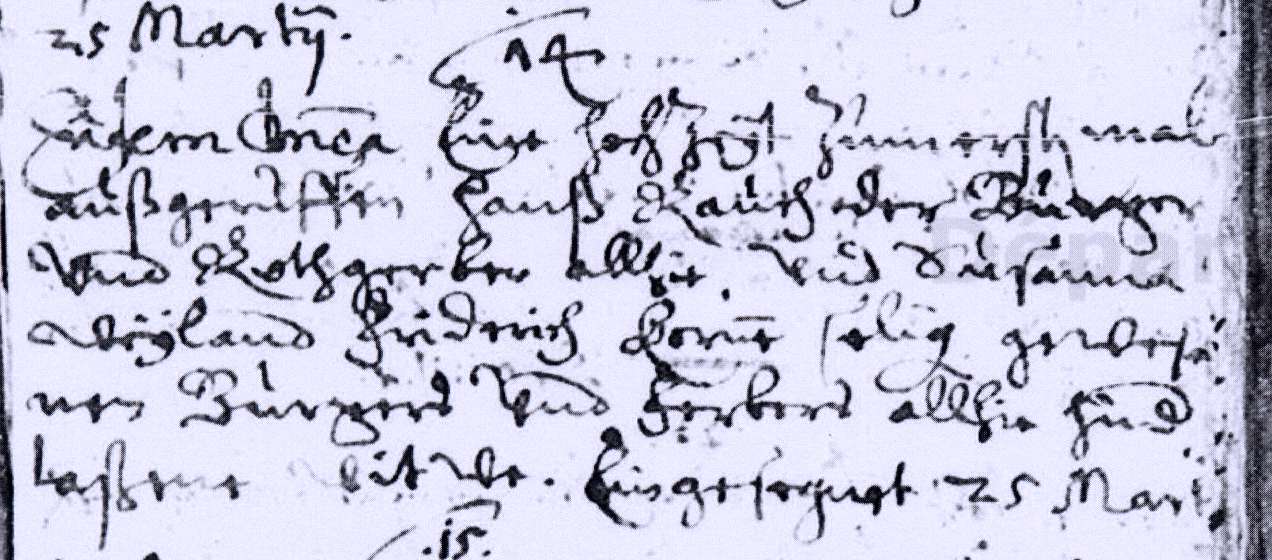 25 Martÿ.
14
eadem Dnica Eine hochzeÿt zum ersten mal
außgeruffen Hanß Rauch der Burger
Vnd Rothgerber allhie, Vnd Susanna
weÿland Fridrich selig gewese=
nen Burgers Vnd Gerbers allhie hind
laßene witwe. Eingesegnet 25 Marti
.15.